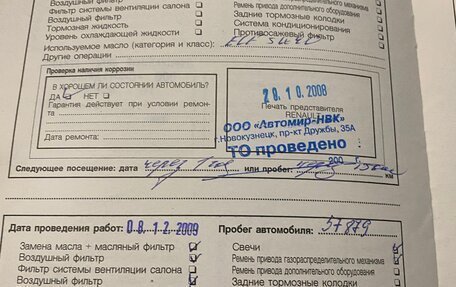 Воздушный фильтр
Фильтр системы вентиляции салона
Тормозная жидкость
Уровень охлаждающей жидкости
Ремень привода газораспределительного механизма
Ремень привода дополнительного оборудования
Задние тормозные колодки
Система кондиционирования
Противосажевый фильтр
Используемое масло (категория и класс):
Другие операции
Проверка наличия коррозии
В ХОРОШЕМ ЛИ СОСТОЯНИИ АВТОМОБИЛЬ?
ДА НЕТ
Гарантия действует при условии ремонта
Дата ремонта:
28 10 2008
Печать представителя
RENAULT
ООО «Автомир-НВК»
г.Новокузнецк, пр-кт Дружбы, 35А
ТО проведено
Следующее посещение: дата через 1 год или пробег: 200 г. км
Дата проведения работ: 08 12 2009 Пробег автомобиля: 57879
Замена масла + масляный фильтр
Воздушный фильтр
Фильтр системы вентиляции салона
Воздушный фильтр
Свечи
Ремень привода газораспределительного механизма
Ремень привода дополнительного оборудования
Задние тормозные колодки